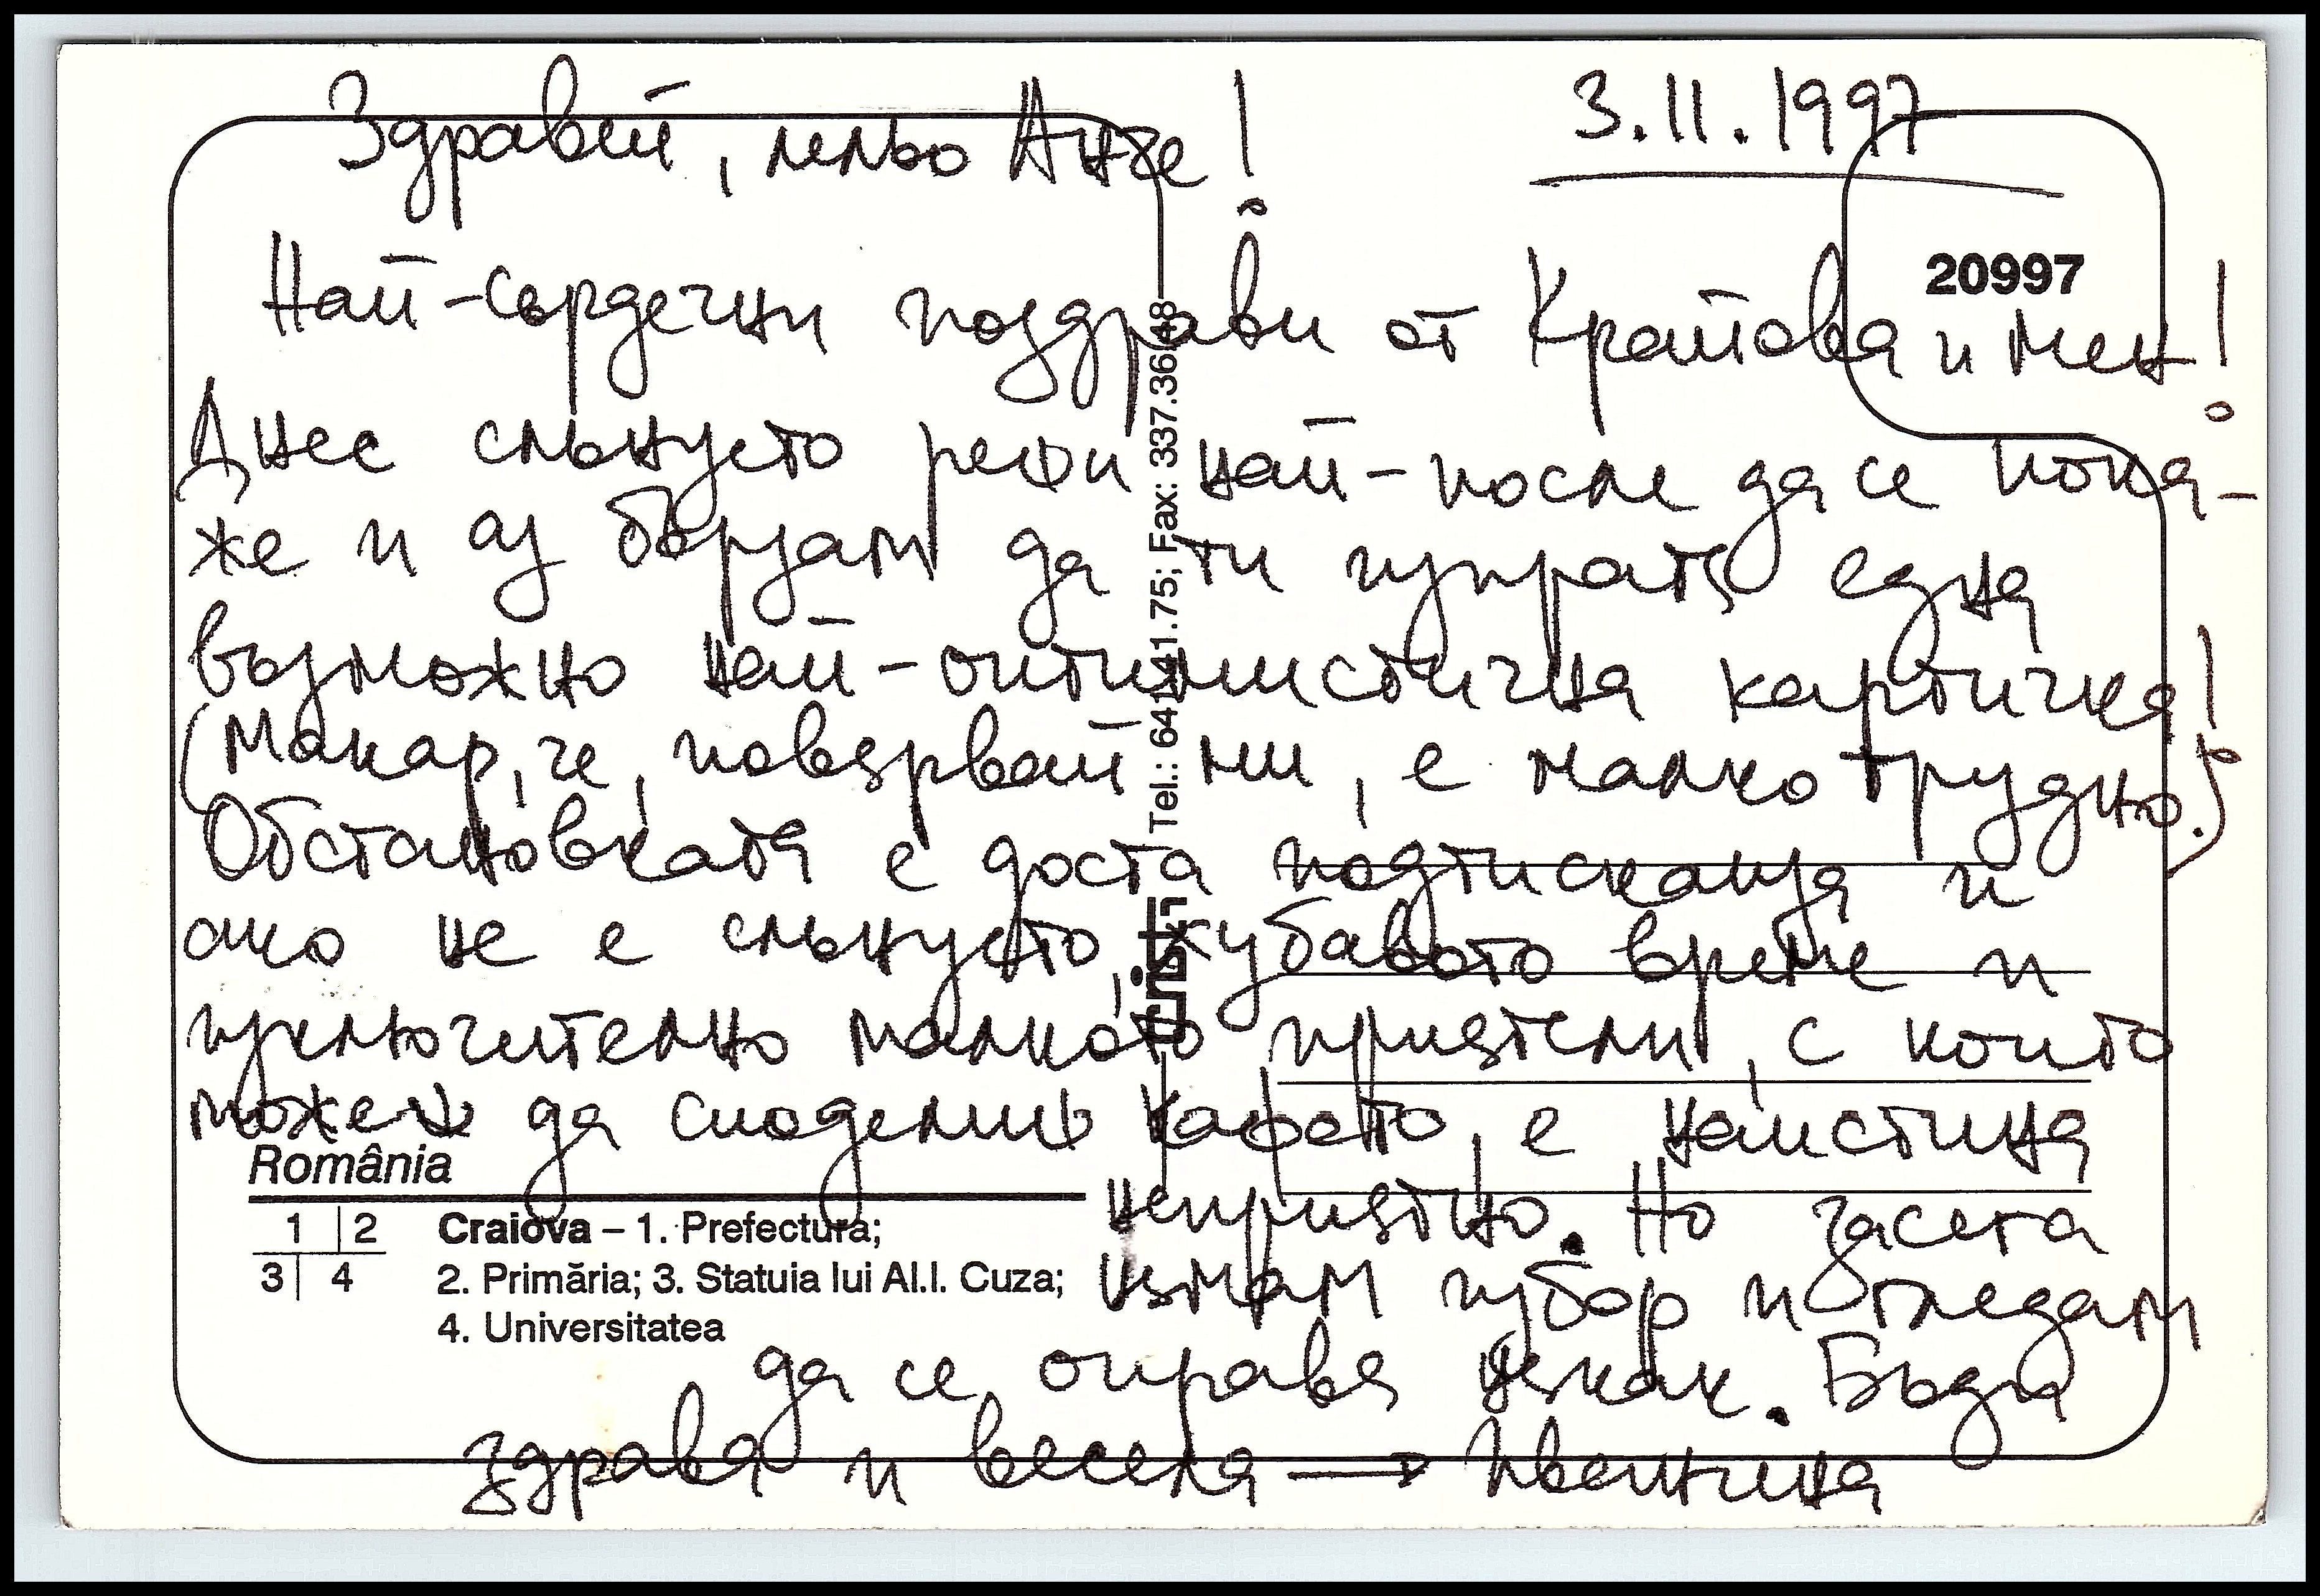 Здравей, лельо Анче!
3.11.1997
20997
Най-сърдечни поздрави от Крайова и мен!
Днес слънцето реши най-после да се пока-
же и аз бързам да ти изпратя една
възможно най-оптимистична картичка!
(Макар, че, повярвай ми, е малко трудно.)
Обстановката е доста подтискаща и
ако не е слънцето, хубавото време и
изключително малкото приятели, с които
можеш да споделиш кафето, е наистина
неприятно. Но засега
нямам избор и гледам
да се оправя някак. Бъди
здрава и весела → Иваничка
România
1 2
3 4
Craiova – 1. Prefectura;
2. Primăria; 3. Statuia lui Al.I. Cuza;
4. Universitatea
Crist Tel.: 641.41.75; Fax: 337.36.48